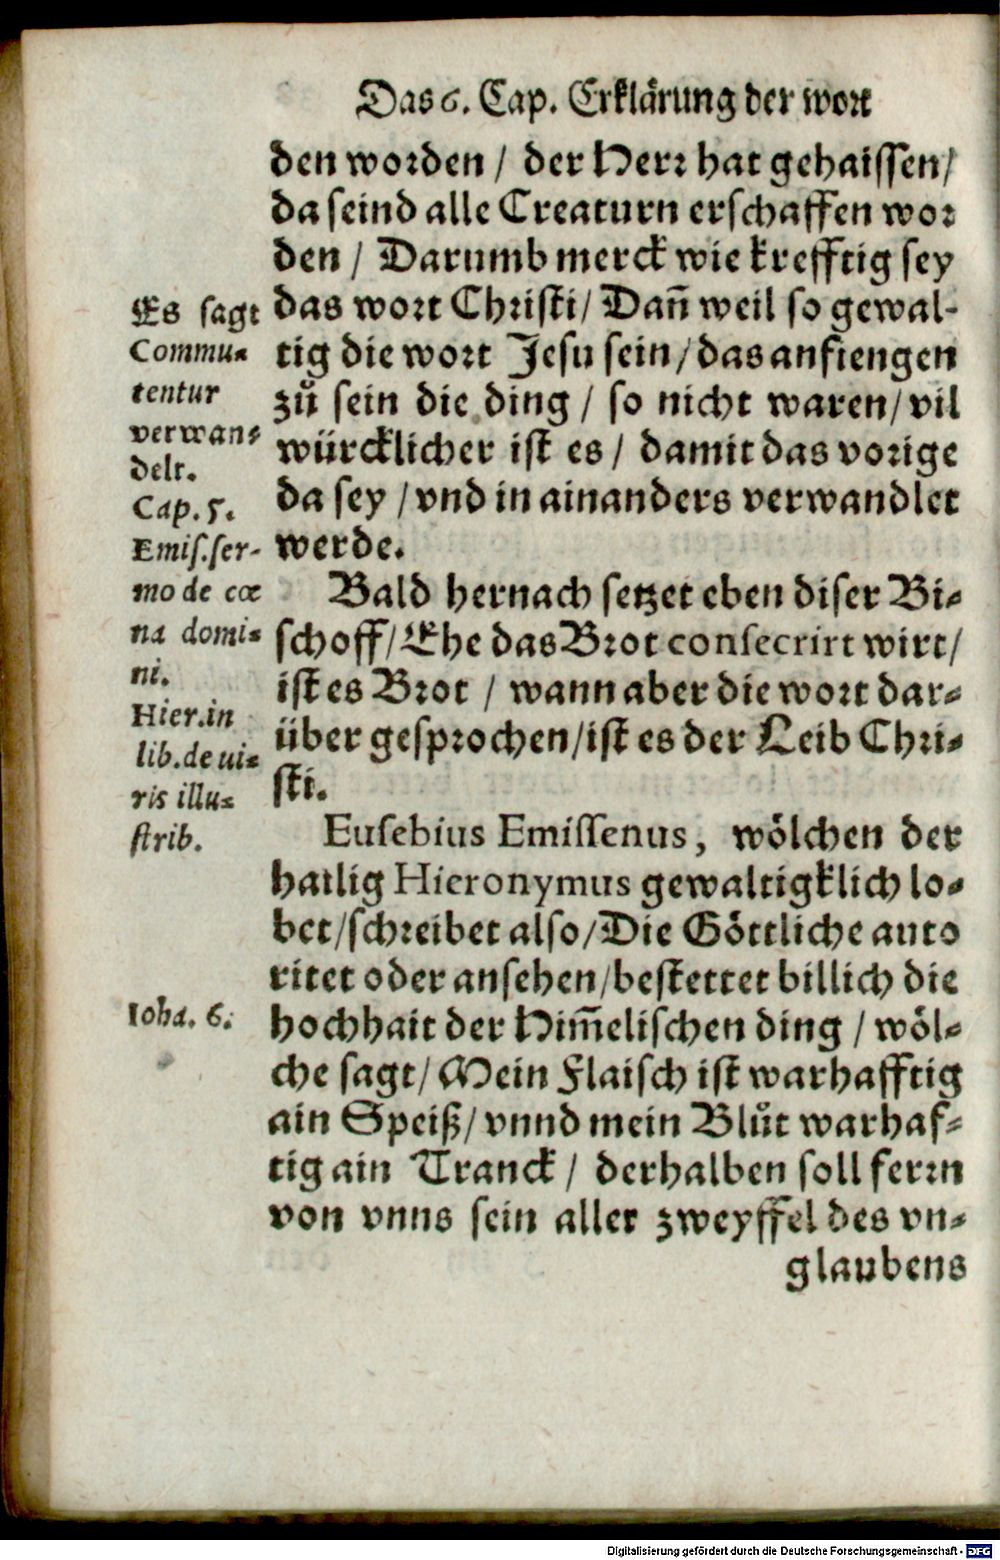 Das 6. Cap. Erklärung der wort
den worden / der Herr hat gehaissen/
da seind alle Creaturn erschaffen wor
den / Darumb merck wie krefftig sey
das wort Christi/ Dañ weil so gewal-
tig die wort Jesu sein/das anfiengen
zů sein die ding / so nicht waren/vil
würcklicher ist es/ damit das vorige
da sey /vnd in ainanders verwandlet
werde.
Bald hernach setzet eben diser Bi-
schoff/Ehe das Brot consecrirt wirt/
ist es Brot / wann aber die wort dar-
über gesprochen/ist es der Leib Chri-
sti.
Eusebius Emissenus, wölchen der
hailig Hieronymus gewaltigklich lo-
bet/schreibet also/Die Göttliche auto
ritet oder ansehen/bestettet billich die
hochhait der Him̃elischen ding / wöl-
che sagt/ Mein Flaisch ist warhafftig
ain Speiß/ vnnd mein Blůt warhaf-
tig ain Tranck / derhalben soll ferrn
von vnns sein aller zweyffel des vn-
glaubens
Es sagt
Commu-
tentur
verwan-
delt.
Cap. 5.
Emis. ser-
mo de cœ
na domi-
ni.
Hier. in
lib. de ui-
ris illu-
strib.
Ioha. 6.
Digitalisierung gefördert durch die Deutsche Forschungsgemeinschaft - DFG